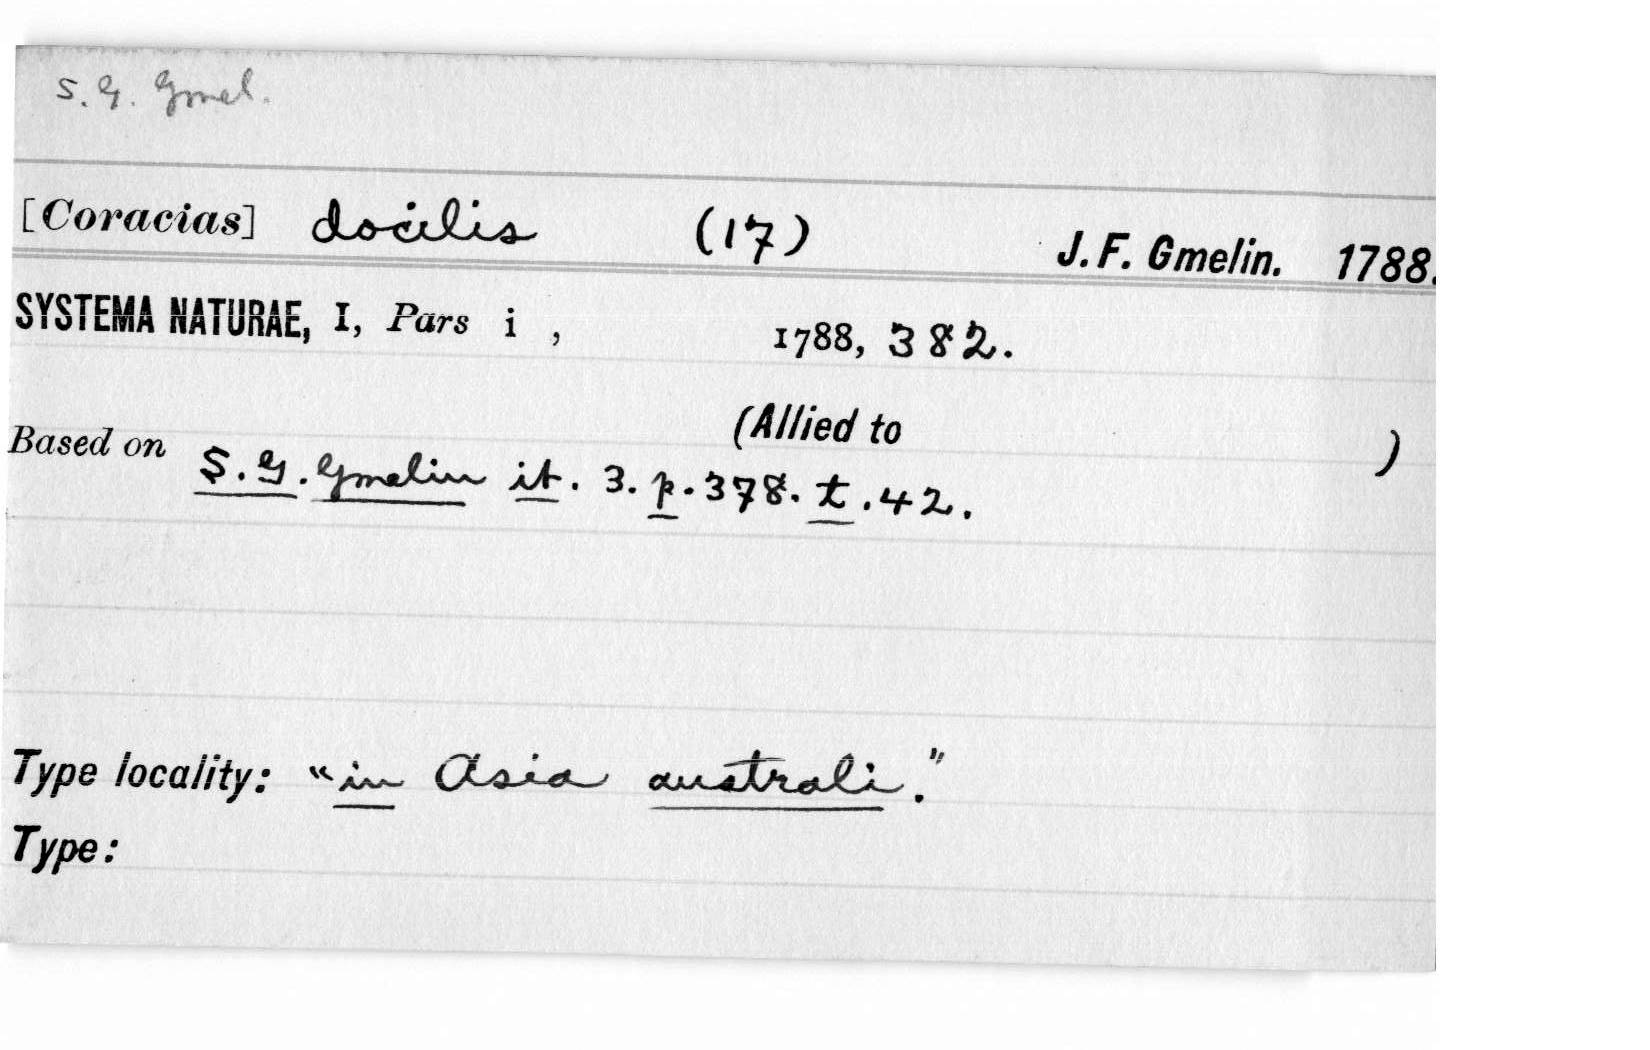 S. G. Gmel.
[Coracias] docilis (17) J. F. Gmelin. 1788.
SYSTEMA NATURAE, I, Pars i , 1788, 382.
(Allied to )
Based on S. G. Gmelin it. 3. p. 378. t. 42.
Type locality: "in Asia australi."
Type: